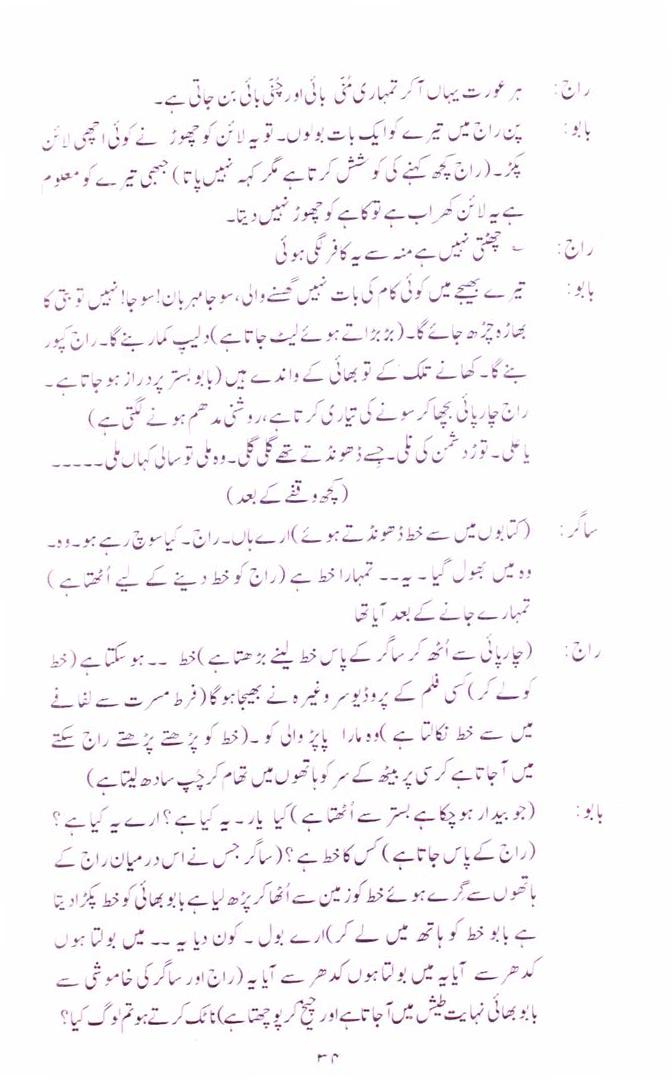 راج: ہر عورت یہاں آکر تمہاری مُنّی بائی اور چُنّی بائی بن جاتی ہے۔
بابو: پن راج میں تیرے کو ایک بات بولوں۔ تو یہ لائن کو چھوڑ نے کوئی اچھی لائن
پکڑ۔ (راج کچھ کہنے کی کوشش کرتا ہے مگر کہہ نہیں پاتا) جبھی تیرے کو معلوم
ہے یہ لائن کھراب ہے تو کا ہے کو چھوڑ نہیں دیتا۔
راج: ؎ چھٹتی نہیں ہے منہ سے یہ کافر لگی ہوئی
بابو: تیرے بھیجے میں کوئی کام کی بات نہیں گھسنے والی، سوجا مہربان! سوجا! نہیں تو بتی کا
بھاڑہ چڑھ جائے گا۔ (بڑبڑاتے ہوئے لیٹ جاتا ہے) دلیپ کمار بنے گا۔ راج کپور
بنے گا۔ کھانے تلک کے تو بھائی کے واندے ہیں (بابو بستر پر دراز ہو جاتا ہے۔
راج چارپائی بچھا کر سونے کی تیاری کرتا ہے، روشنی مدھم ہونے لگتی ہے)
یا علی۔ توڑ دشمن کی نلی۔ جسے ڈھونڈتے تھے گلی گلی۔ وہ ملی تو سالی کہاں ملی۔۔۔۔۔
(کچھ وقفے کے بعد)
ساگر: (کتابوں میں سے خط ڈھونڈتے ہوئے) ارے ہاں۔ راج۔ کیا سوچ رہے ہو۔ وہ۔
وہ میں بھول گیا۔ یہ۔۔ تمہارا خط ہے (راج کو خط دینے کے لیے اُٹھتا ہے)
تمہارے جانے کے بعد آیا تھا
راج: (چارپائی سے اُٹھ کر ساگر کے پاس خط لینے بڑھتا ہے) خط ۔۔ ہو سکتا ہے (خط
کو لے کر) کسی فلم کے پروڈیوسر وغیرہ نے بھیجا ہوگا (فرط مسرت سے لفافے
میں سے خط نکالتا ہے) وہ مارا پاپڑ والی کو۔ (خط کو پڑھتے پڑھتے راج سکتے
میں آجاتا ہے کرسی پر بیٹھ کے سر کو ہاتھوں میں تھام کر چُپ سادھ لیتا ہے)
بابو: (جو بیدار ہو چکا ہے بستر سے اُٹھتا ہے) کیا یار۔ یہ کیا ہے؟ ارے یہ کیا ہے؟
(راج کے پاس جاتا ہے) کس کا خط ہے؟ (ساگر جس نے اس درمیان راج کے
ہاتھوں سے گرے ہوئے خط کو زمین سے اُٹھا کر پڑھ لیا ہے بابو بھائی کو خط پکڑا دیتا
ہے بابو خط کو ہاتھ میں لے کر) ارے بول۔ کون دیا یہ ۔۔ میں بولتا ہوں
کدھر سے آیا یہ میں بولتا ہوں کدھر سے آیا یہ (راج اور ساگر کی خاموشی سے
بابو بھائی نہایت طیش میں آجاتا ہے اور چیخ کر پوچھتا ہے) ناٹک کرتے ہو تم لوگ کیا؟
۳۴